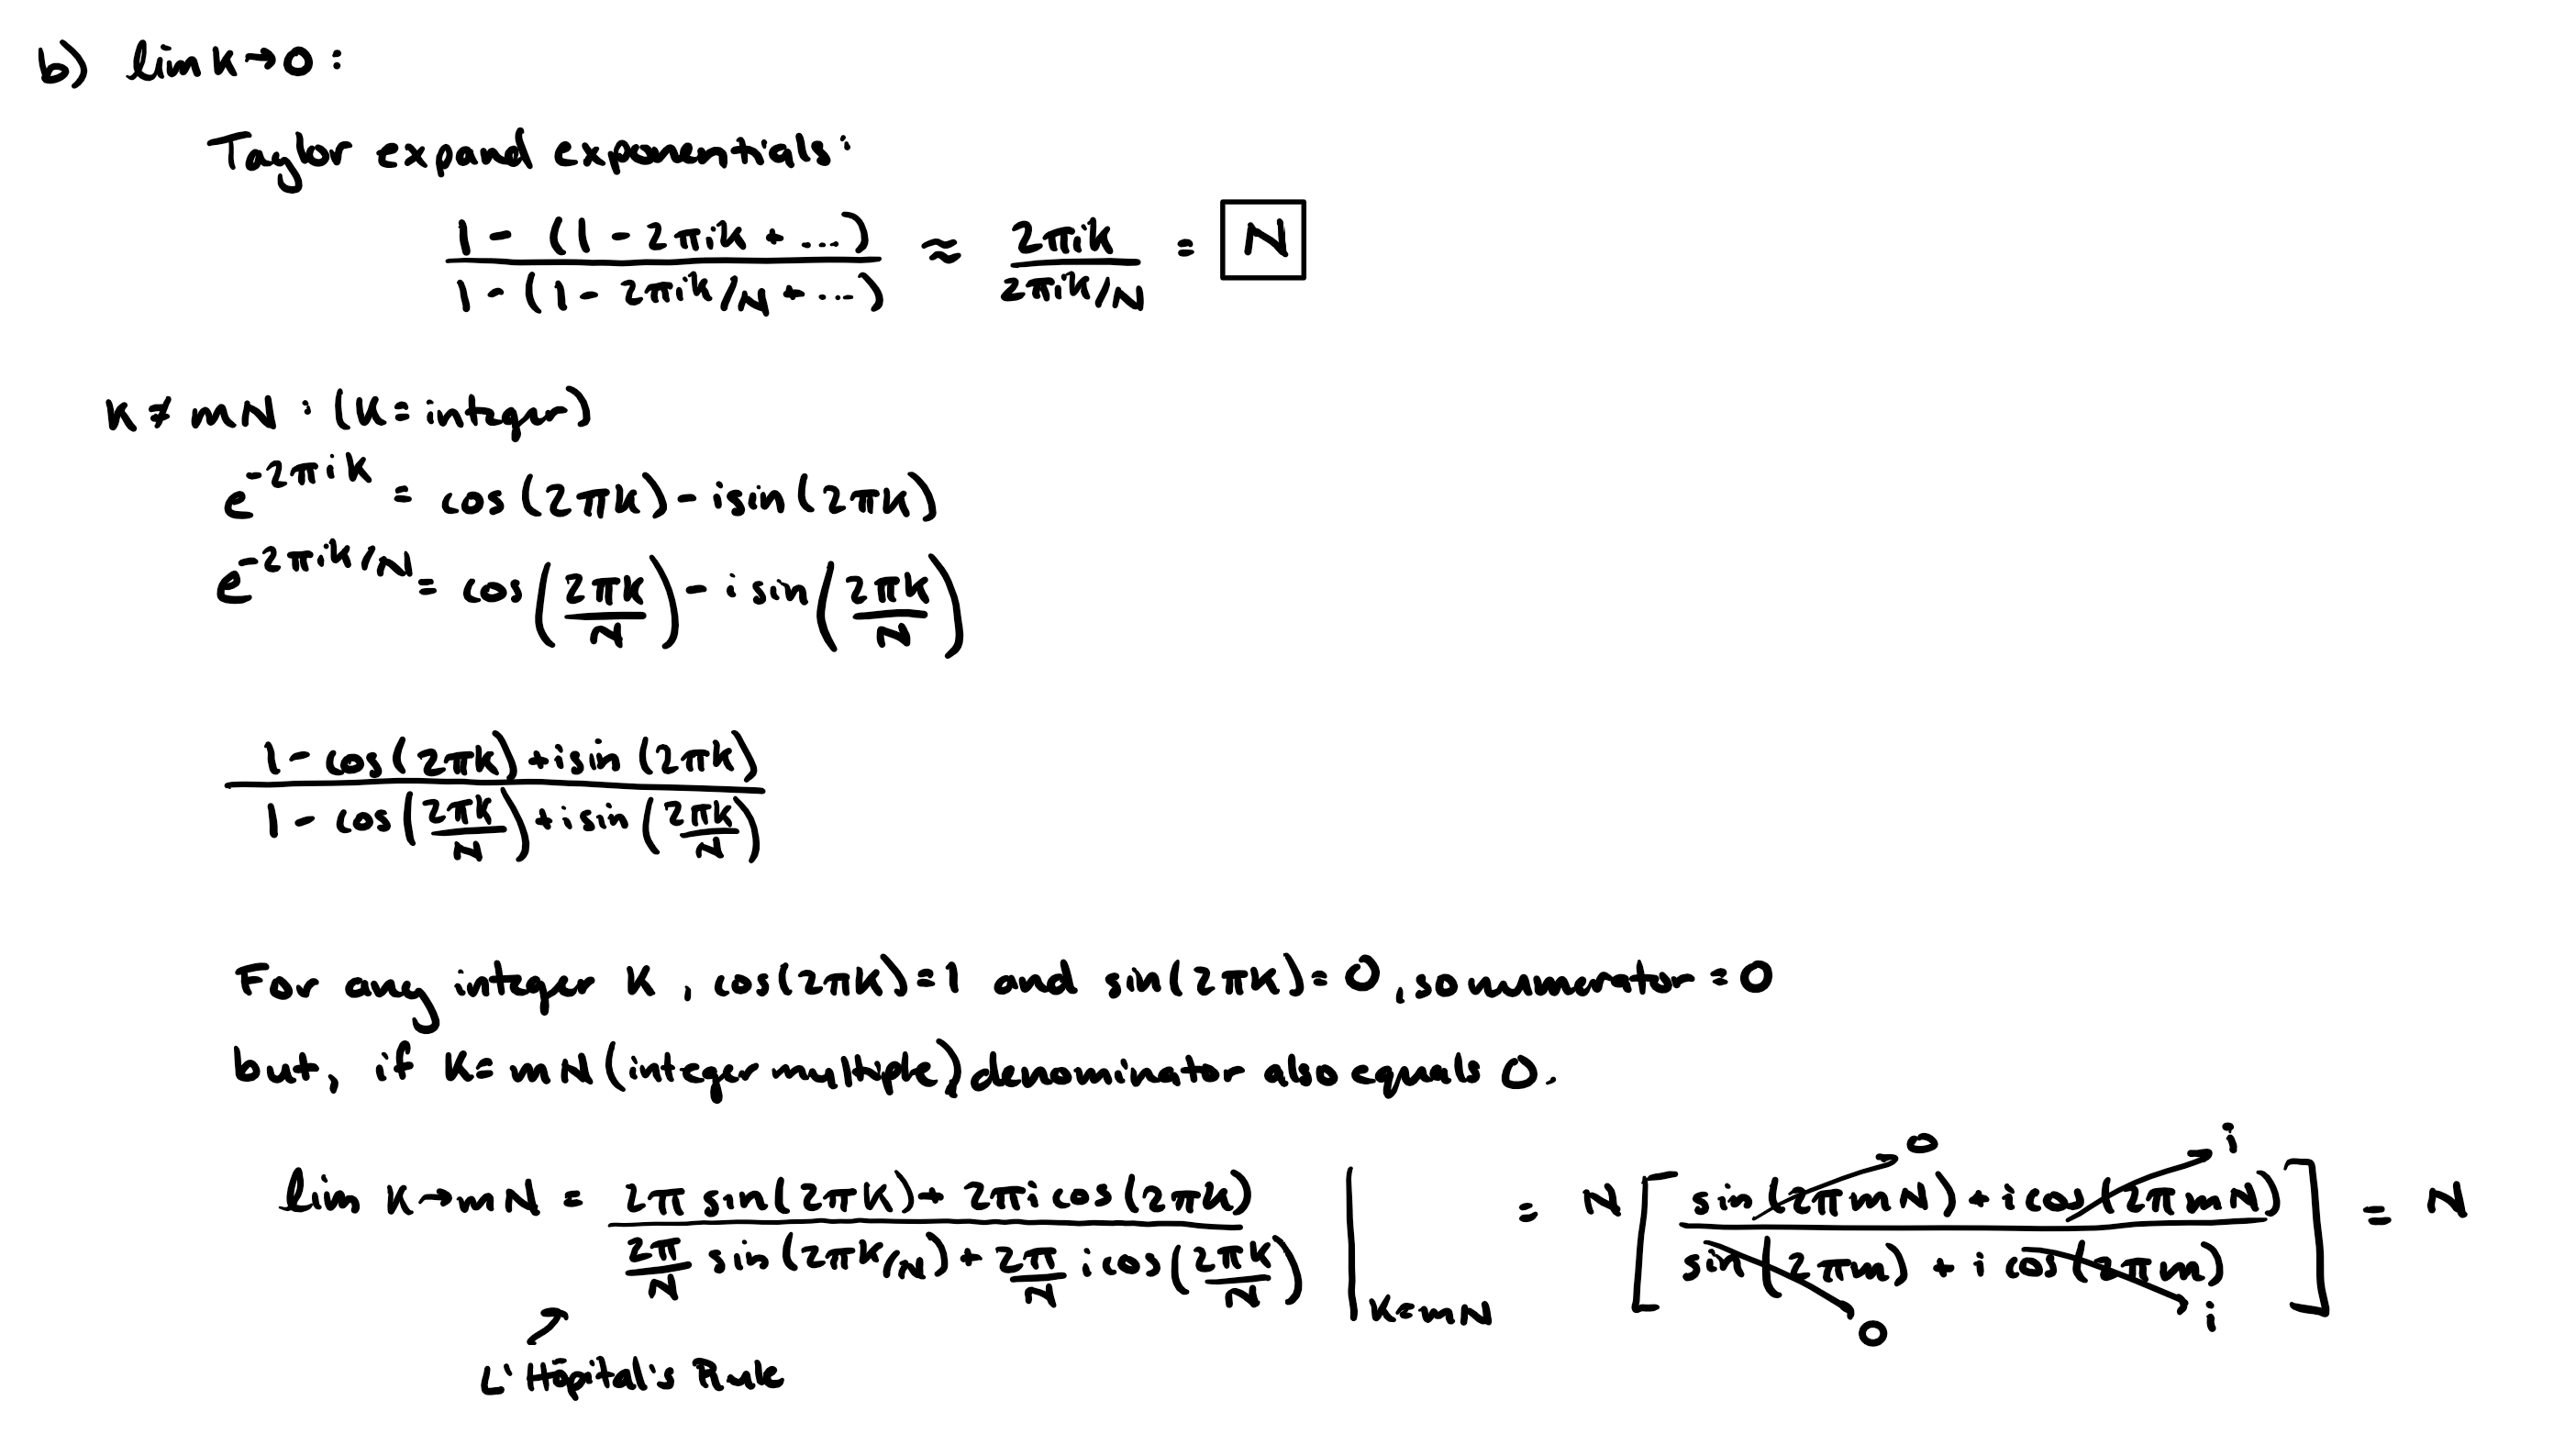 b) lim k→0 :
Taylor expand exponentials:
(1 - (1 - 2πik + ...)) / (1 - (1 - 2πik/N + ...)) ≈ 2πik / (2πik/N) = N
k ≠ mN : (k = integer)
e^{-2πik} = cos(2πk) - isin(2πk)
e^{-2πik/N} = cos(2πk/N) - i sin(2πk/N)
(1 - cos(2πk) + isin(2πk)) / (1 - cos(2πk/N) + isin(2πk/N))
For any integer k, cos(2πk)=1 and sin(2πk)=0, so numerator = 0
but, if k = mN (integer multiple) denominator also equals 0.
lim k→mN = (2π sin(2πk) + 2πi cos(2πk)) / (2π/N sin(2πk/N) + 2π/N i cos(2πk/N)) |_{k=mN} = N [ (sin(2πmN) → 0 + i cos(2πmN) → i) / (sin(2πm) → 0 + i cos(2πm) → i) ] = N
↗
L'Hôpital's Rule